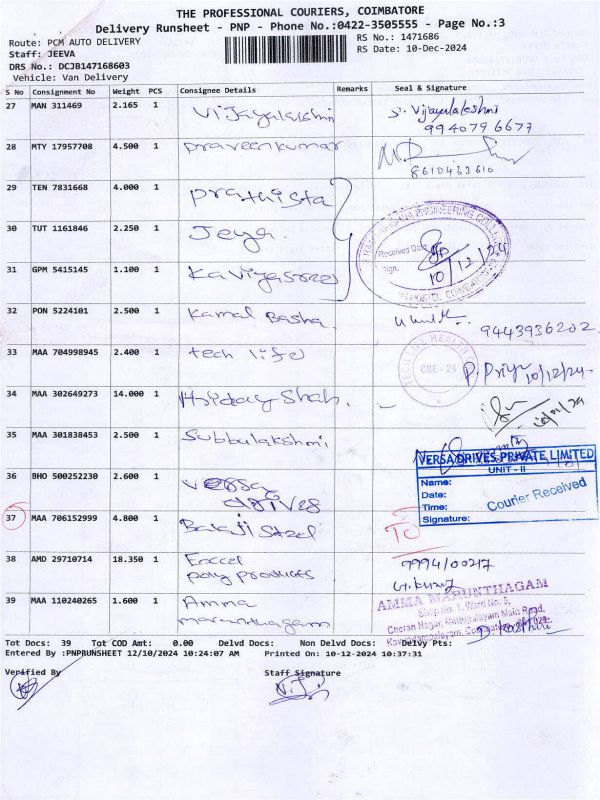 THE PROFESSIONAL COURIERS, COIMBATORE
Delivery Runsheet - PNP - Phone No.:0422-3505555 - Page No.:3
Route: PCM AUTO DELIVERY
RS No.: 1471686
Staff: JEEVA
RS Date: 10-Dec-2024
DRS No.: DCJB147168603
Vehicle: Van Delivery
S No Consignment No Weight PCS Consignee Details Remarks Seal & Signature
27 MAN 311469 2.165 1 Vijayalakshmi S. Vijayalakshmi
9940796677
28 MTY 17957708 4.500 1 praveenkumar
8610433610
29 TEN 7831668 4.000 1 prathista
30 TUT 1161846 2.250 1 Jeya.
ENGINEERING COLLEGE
Received
Sign.
10/12/24
31 GPM 5415145 1.100 1
32 PON 5224101 2.500 1 Kamal Basha
9443936202
33 MAA 704998945 2.400 1 tech life
CBE - 29
P. Priya 10/12/24
34 MAA 302649273 14.000 1 Hriday Shah.
35 MAA 301838453 2.500 1 Subbulakshmi
VERSA DRIVES PRIVATE LIMITED
UNIT - II
36 BHO 500252230 2.600 1 versa
drives
Name:
Date:
Time:
Signature:
Courier Received
37 MAA 706152999 4.800 1 Balaji Steel
TO
38 AMD 29710714 18.350 1 Excel
poly products
39 MAA 110240265 1.600 1 Amma
marunthagam.
AMMA MARUNTHAGAM
Shop No. 1, Ward No: 8,
Cheran Nagar, Mettupalayam Main Road,
Tot Docs: 39 Tot COD Amt: 0.00 Delvd Docs: Non Delvd Docs: Delvy Pts:
Entered By :PNPRUNSHEET 12/10/2024 10:24:07 AM Printed On: 10-12-2024 10:37:31
Verified By Staff Signature